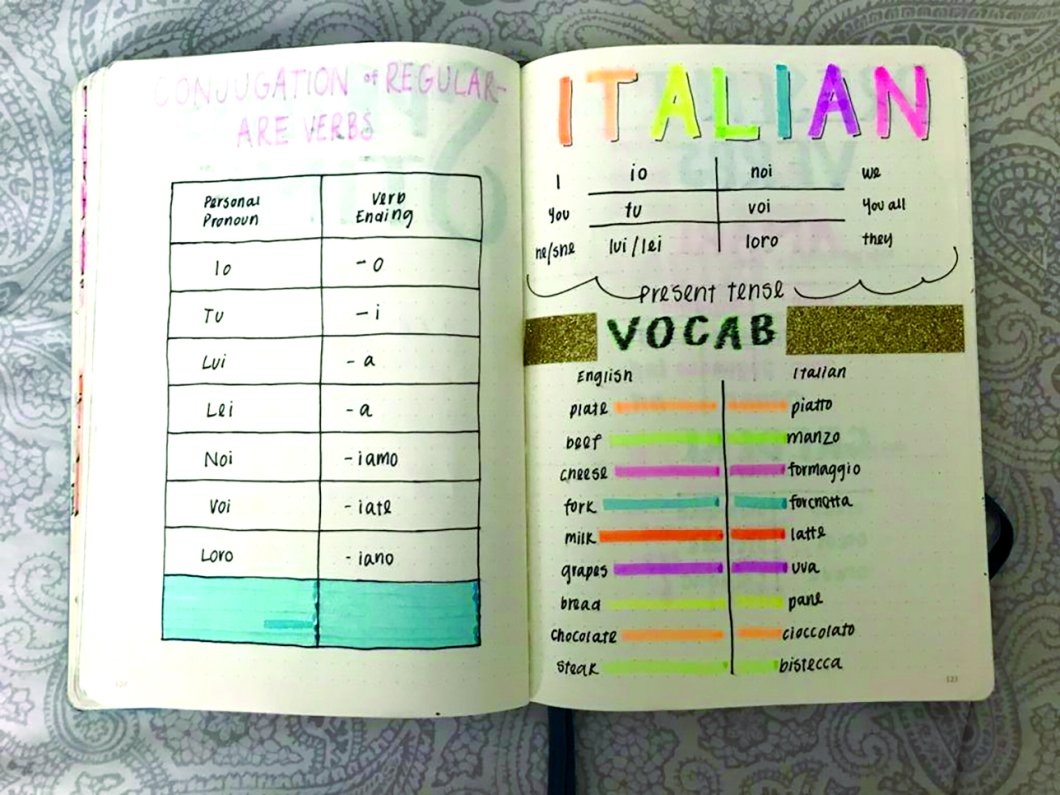 CONJUGATION of REGULAR-
ARE VERBS
Personal Pronoun | Verb Ending
Io | -o
Tu | -i
Lui | -a
Lei | -a
Noi | -iamo
Voi | -iate
Loro | -iano
ITALIAN
I | io | noi | we
You | tu | voi | You all
he/she | lui/lei | loro | they
present tense
VOCAB
English | Italian
plate | piatto
beef | manzo
cheese | formaggio
fork | forchetta
milk | latte
grapes | uva
bread | pane
chocolate | cioccolato
steak | bistecca
123